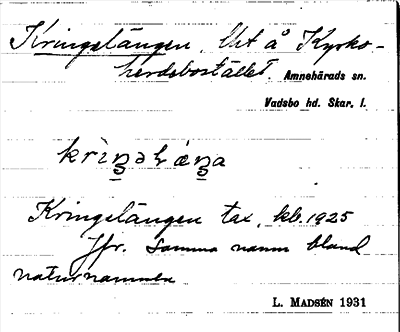 Kringelängen. Urt å Kyrko-
herdebostället. Amnehärads sn.
Vadsbo hd. Skar. l.
krìŋəlǽŋa
Kringelängen tax. kb. 1925
Jfr. samma namn bland
naturnamnen
L. Madsén 1931